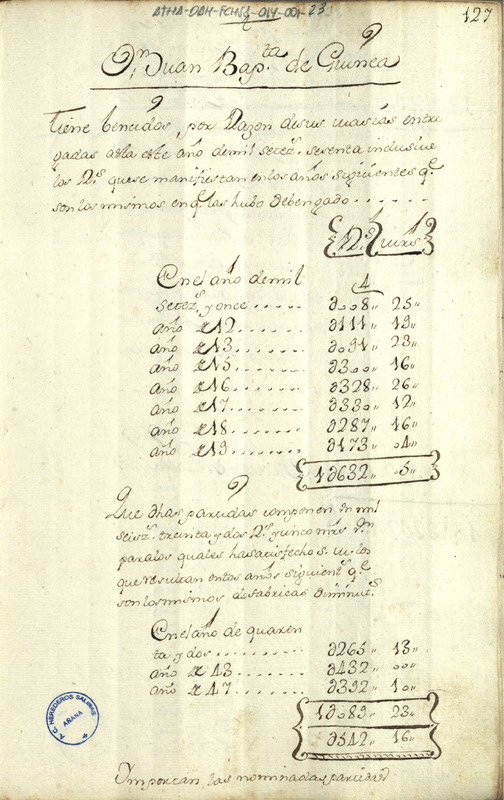 ATHA-DAH-FCHSA-014-001-23
127
Dn Juan Bapta de Guinea
Tiene bencidos, por Razon de sus quasias entre
gadas asta este año de mil setezs sesenta inclusive
los Rs que se manifiestan en los años siguientes qe
son los mismos en q. las hubo debengado
Rs mrs
En el año de mil
setezs y once ..... ð008,, 25,,
año de 12 ....... ð111,, 19,,
año de 13 ....... ð091,, 23,,
año de 15 ....... ð300,, 16,,
año de 16 ....... ð328,, 26,,
año de 17 ....... ð330,, 12,,
año de 18 ....... ð287,, 16,,
año de 19 ....... ð173,, 04,,
1ð632,, 05,,
Que dhas partidas componen Vn mil
seisz. treinta y dos Rs y cinco mrs Vn
para los quales ha satisfecho s. m. los
que resultan en los años siguients qe
son los mismos de fabricas
En el año de quaren
ta y dos ......... ð265,, 13,,
año de 43 ........ ð432,, 00,,
año de 47 ........ ð392,, 10,,
1ð089,, 23,,
ð542,, 16,,
Importan las nominadas partidas
A.C. HEREDEROS SALINAS
AÑANA